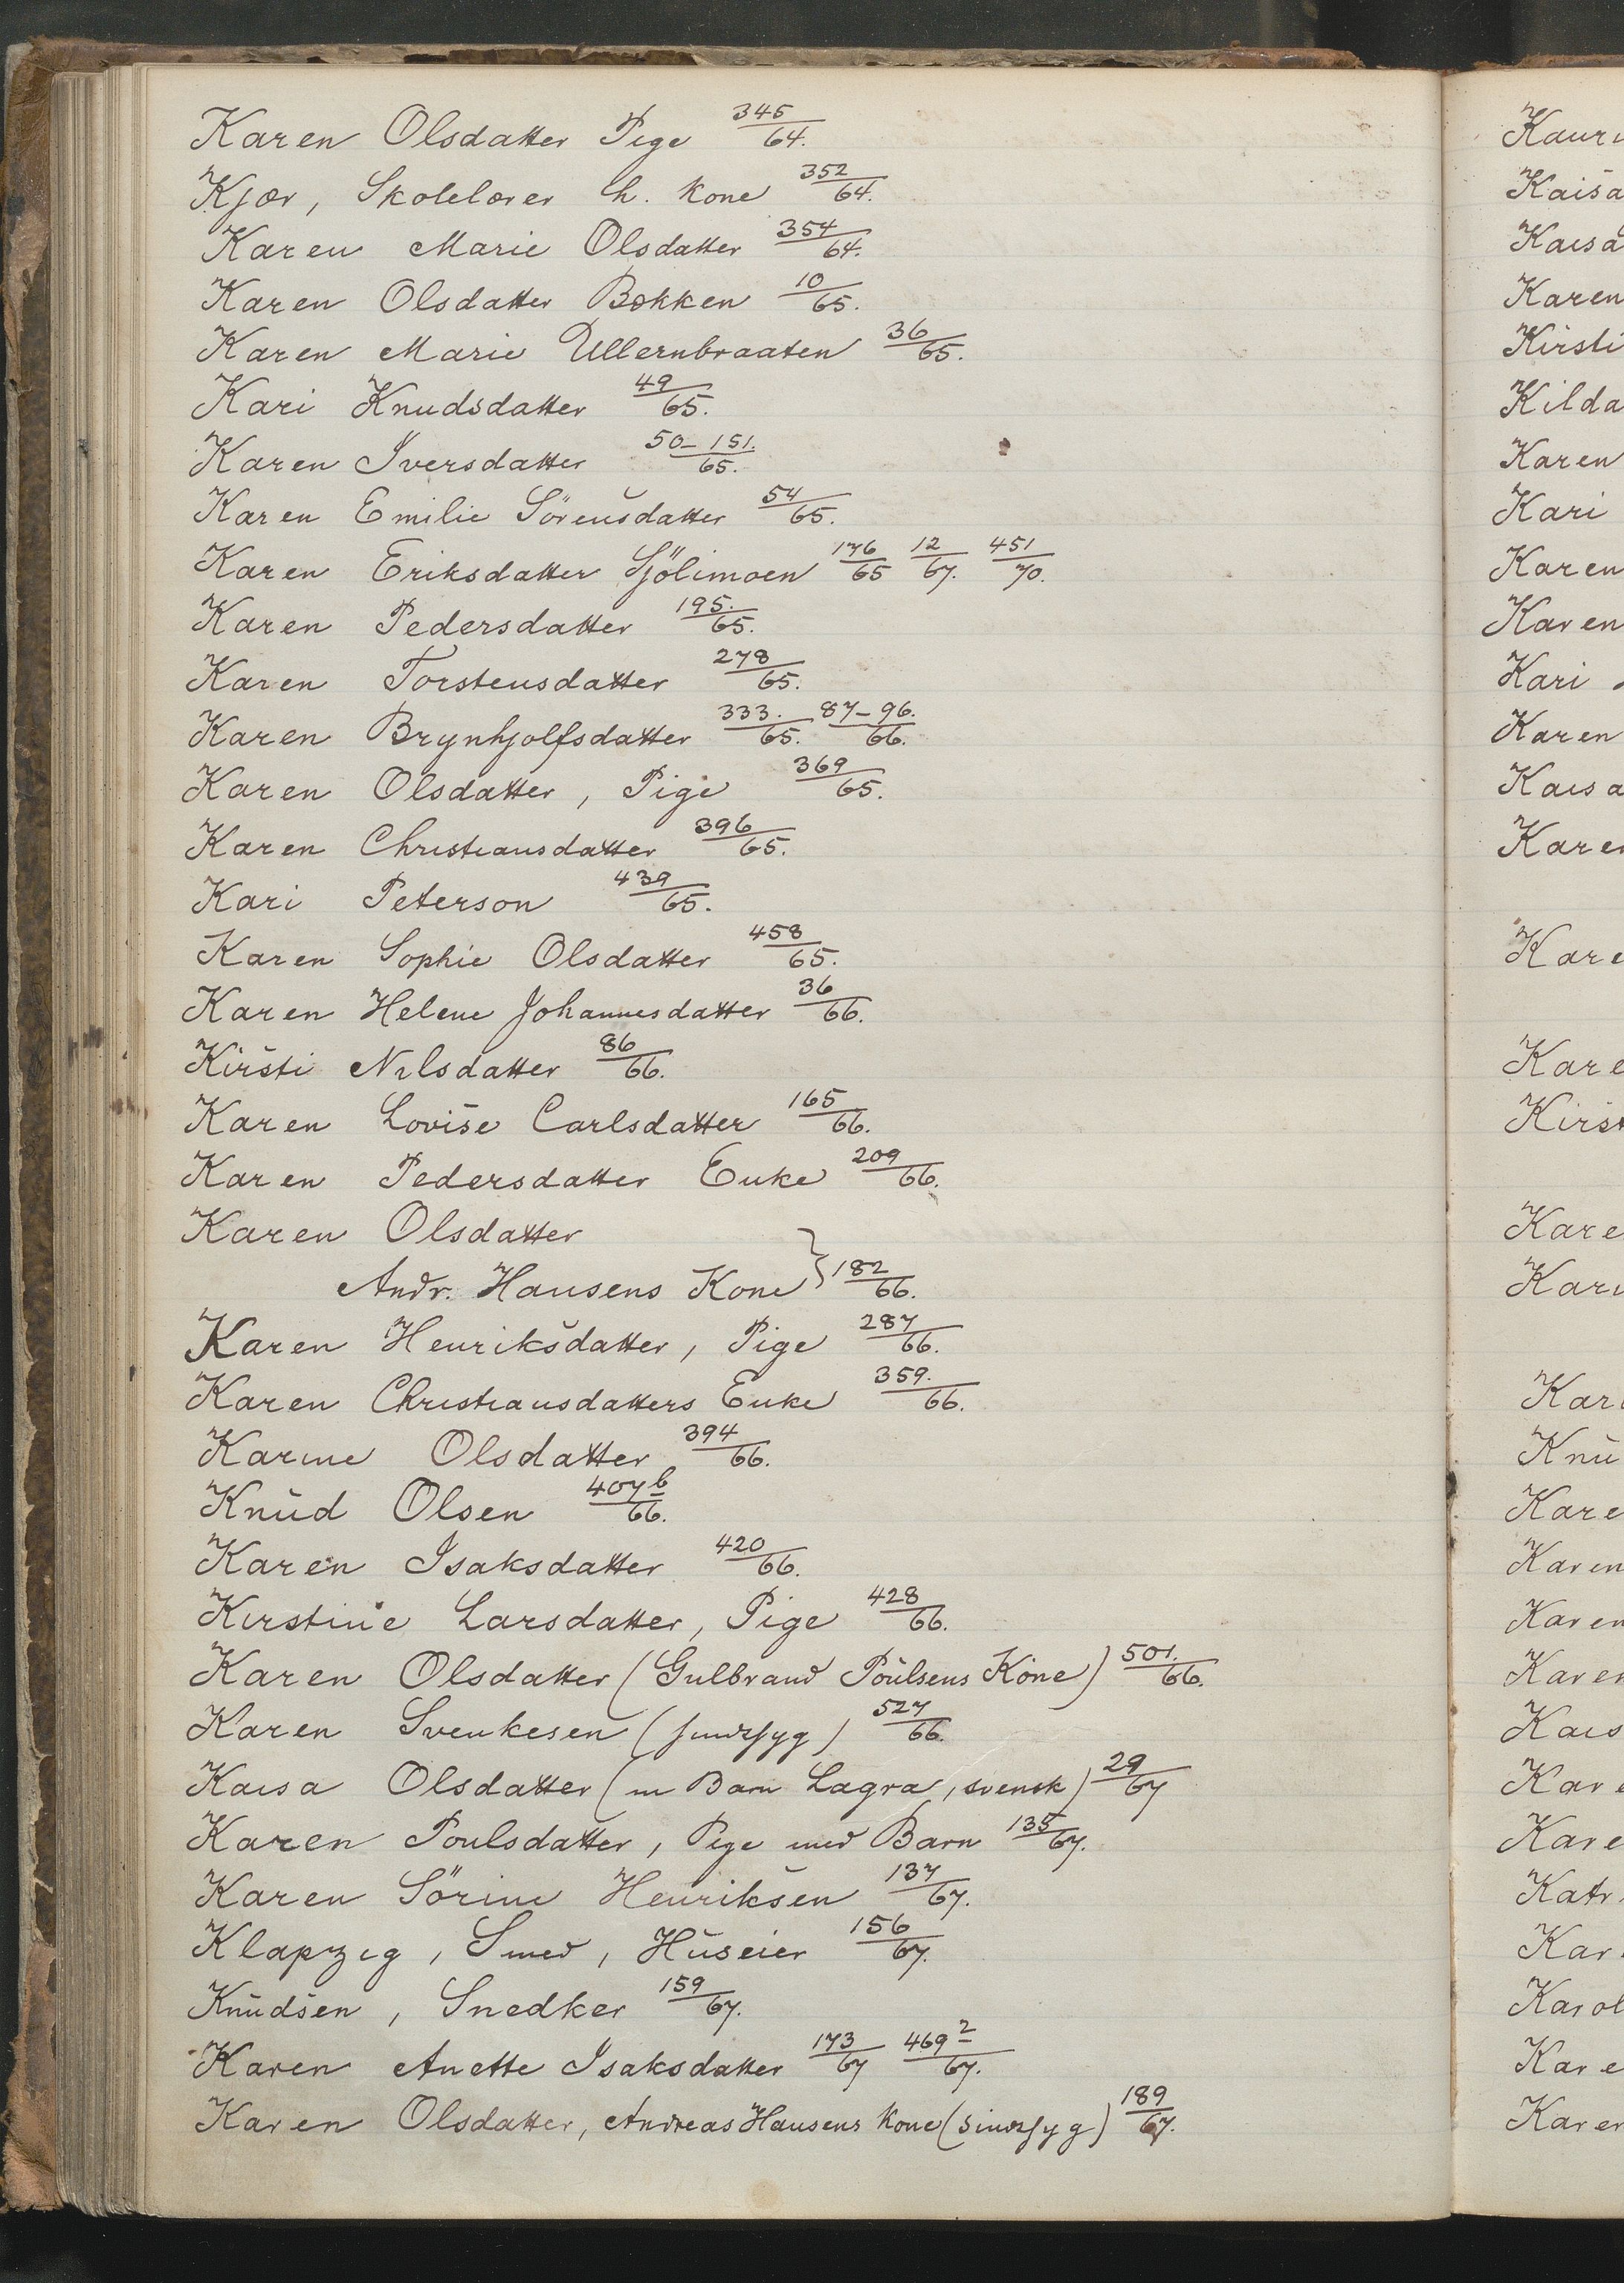 Karen Olsdatter Pige 345/64.
Kjær, Skolelærer h. Kone 352/64.
Karen Marie Olsdatter 354/64.
Karen Olsdatter Bækken 10/65.
Karen Marie Ullernbraaten 36/65.
Kari Knudsdatter 49/65.
Karen Iversdatter 50-151./65.
Karen Emilie Sörensdatter 54/65.
Karen Eriksdatter Sjölimoen 176/65 12/67. 451/70.
Karen Pedersdatter 195./65.
Karen Torstensdatter 278/65.
Karen Brynhjolfsdatter 333./65. 87-96./66.
Karen Olsdatter, Pige 369/65.
Karen Christiansdatter 396/65.
Kari Peterson 439/65.
Karen Sophie Olsdatter 458/65.
Karen Helene Johannesdatter 36/66.
Kirsti Nilsdatter 86/66.
Karen Lovise Carlsdatter 165/66.
Karen Pedersdatter Enke 209/66.
Karen Olsdatter
Andr. Hansens Kone } 182/66.
Karen Henriksdatter, Pige 287/66.
Karen Christiansdatters Enke 359./66.
Karine Olsdatter 394/66.
Knud Olsen 407b/66.
Karen Isaksdatter 420/66.
Kirstine Larsdatter, Pige 428/66.
Karen Olsdatter (Gulbrand Poulsens Kone) 501./66.
Karen Svenkesen (sindssyg) 527/66.
Kaisa Olsdatter (m Barn Lagra, svensk) 29/67
Karen Poulsdatter, Pige med Barn 135/67.
Karen Sörine Henriksen 137/67.
Klapzig, Smed, Huseier 156/67.
Knudsen, Snedker 159/67.
Karen Anette Isaksdatter 173/67 469 2/67.
Karen Olsdatter, Andreas Hansens Kone (sindssyg) 189/67.
Kaisa
Kaisa
Karen
Kirsti
Kilda
Karen
Kari
Karen
Karen
Kari
Karen
Kaisa
Karen
Kare
Kare
Kirst
Kare
Kari
Kari
Knu
Kare
Karen
Karen
Karen
Kais
Kare
Kare
Katr
Kar
Karol
Kare
Karen